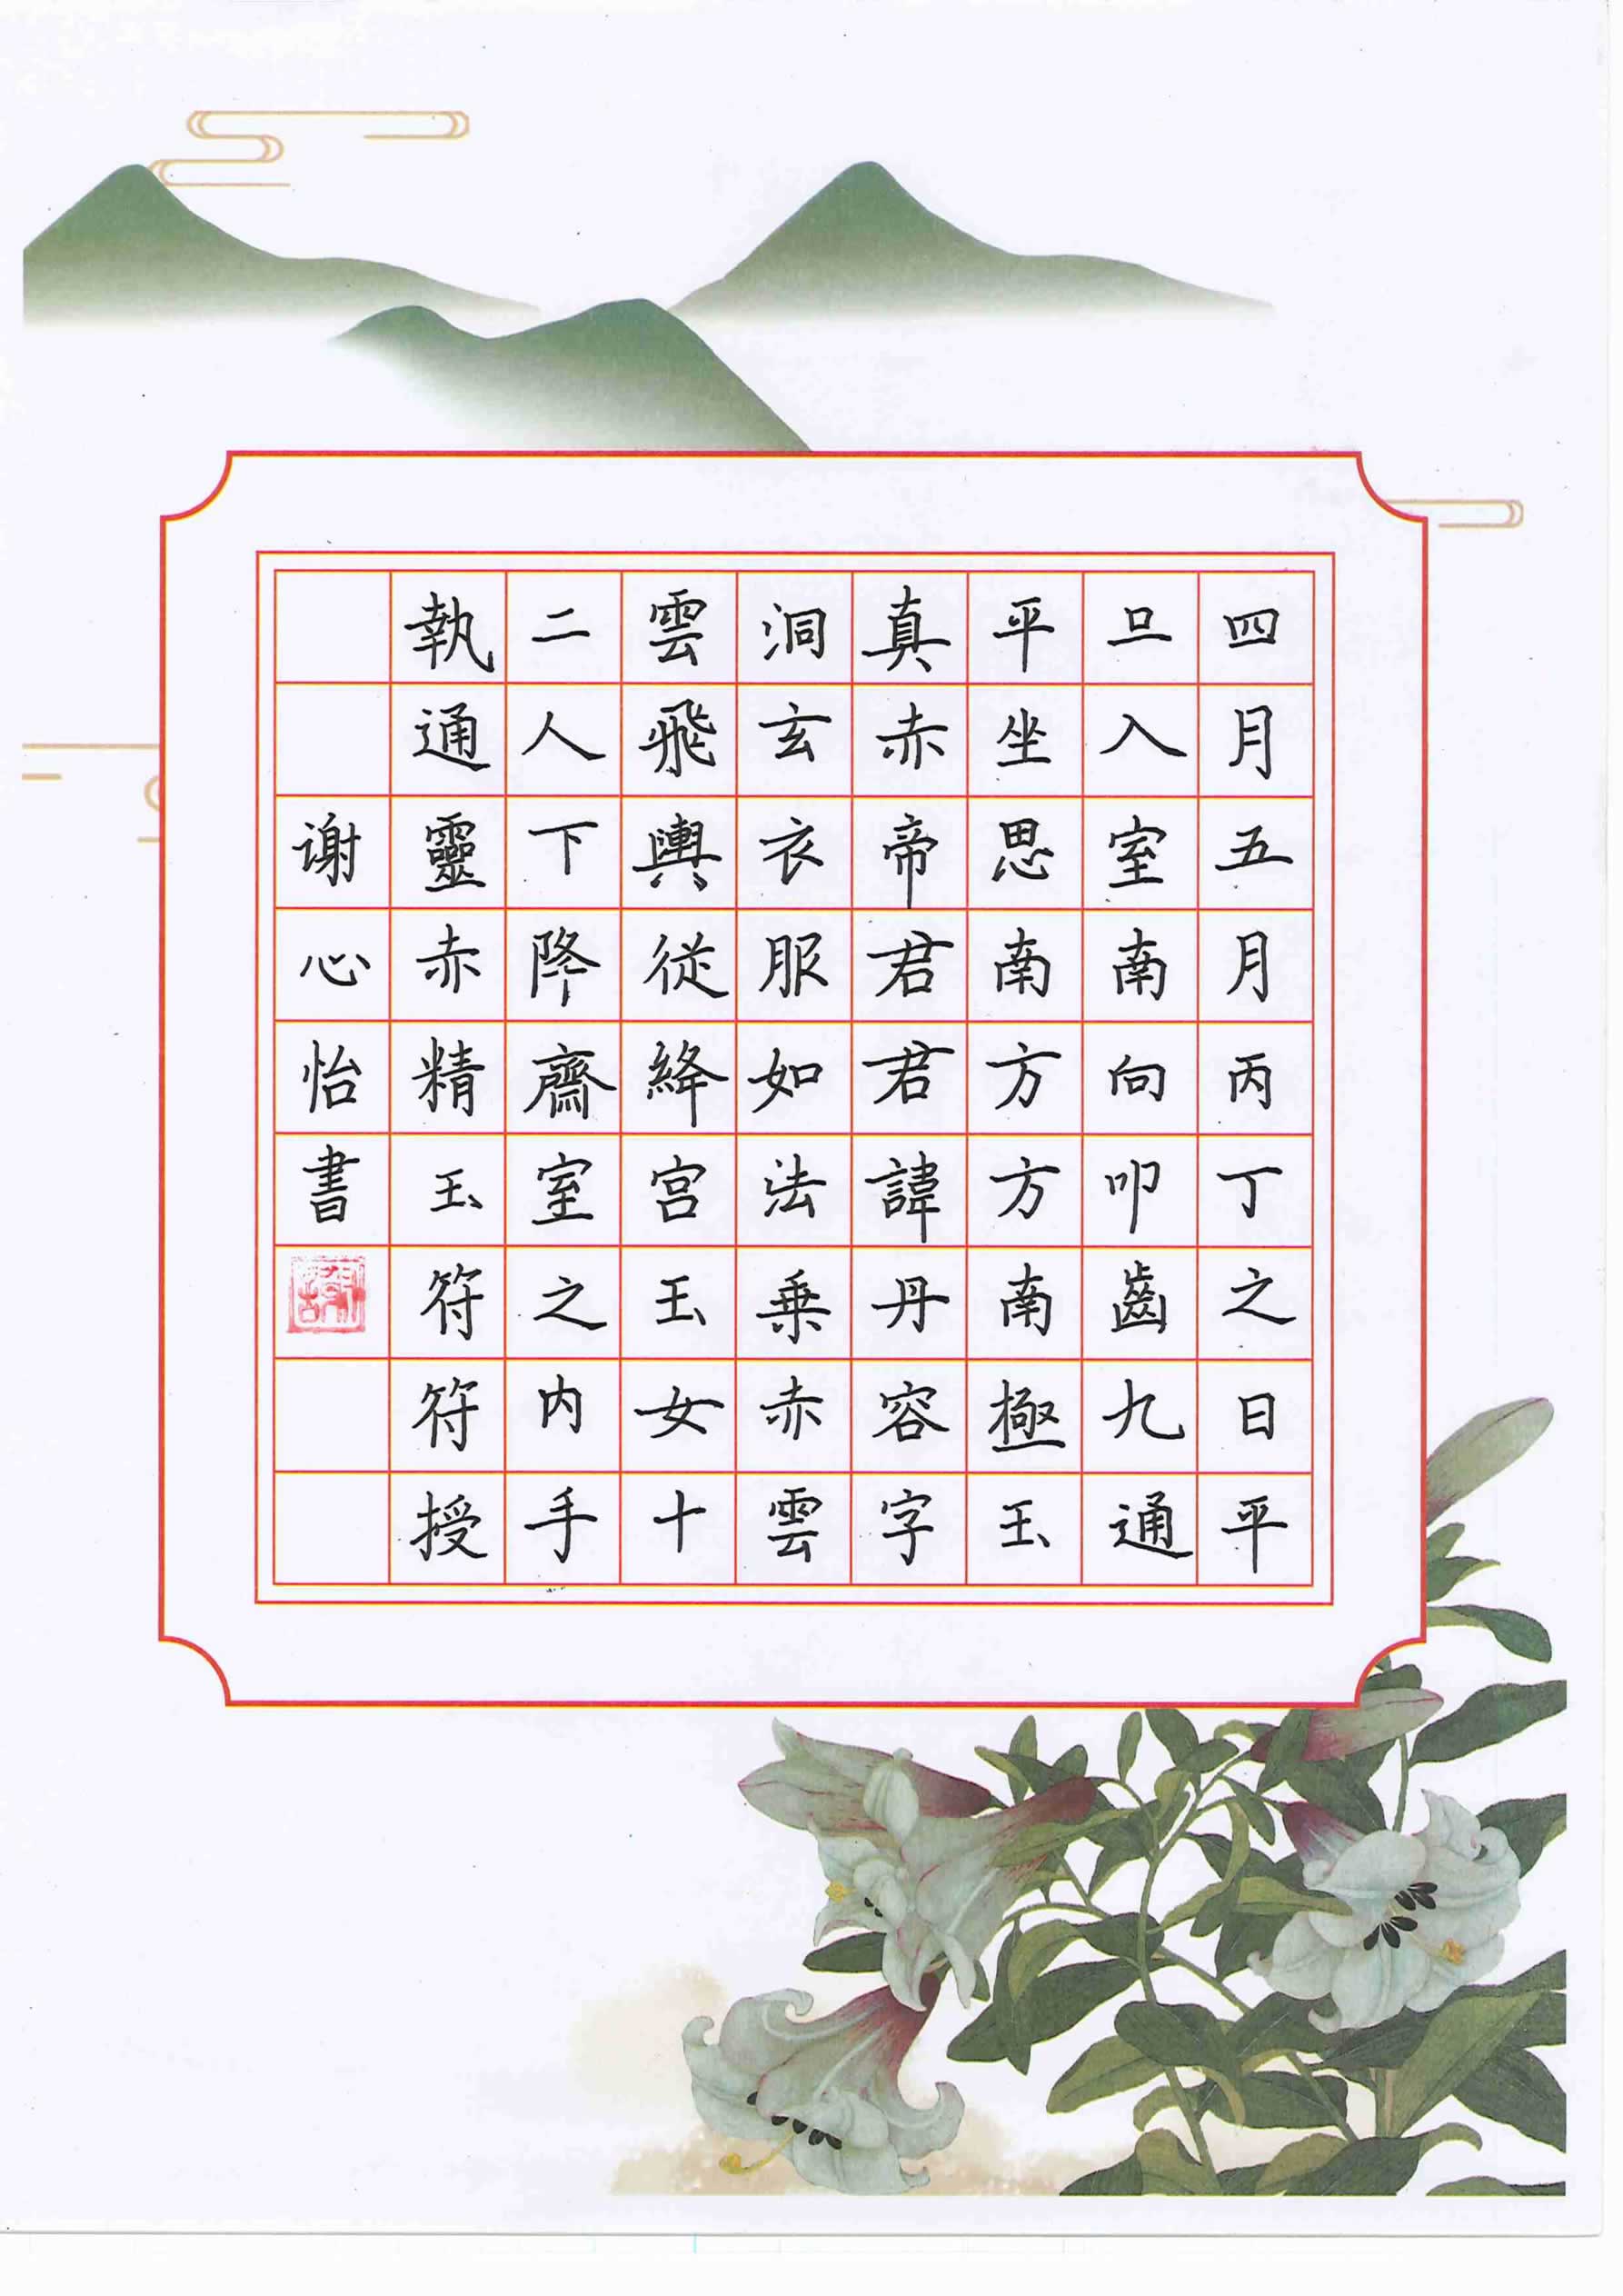 四月五月丙丁之日平
旦入室南向叩齒九通
平坐思南方方南極玉
真赤帝君君諱丹容字
洞玄衣服如法乗赤雲
雲飛輿從絳宫玉女十
二人下降齋室之内手
執通靈赤精玉符符授
谢心怡書